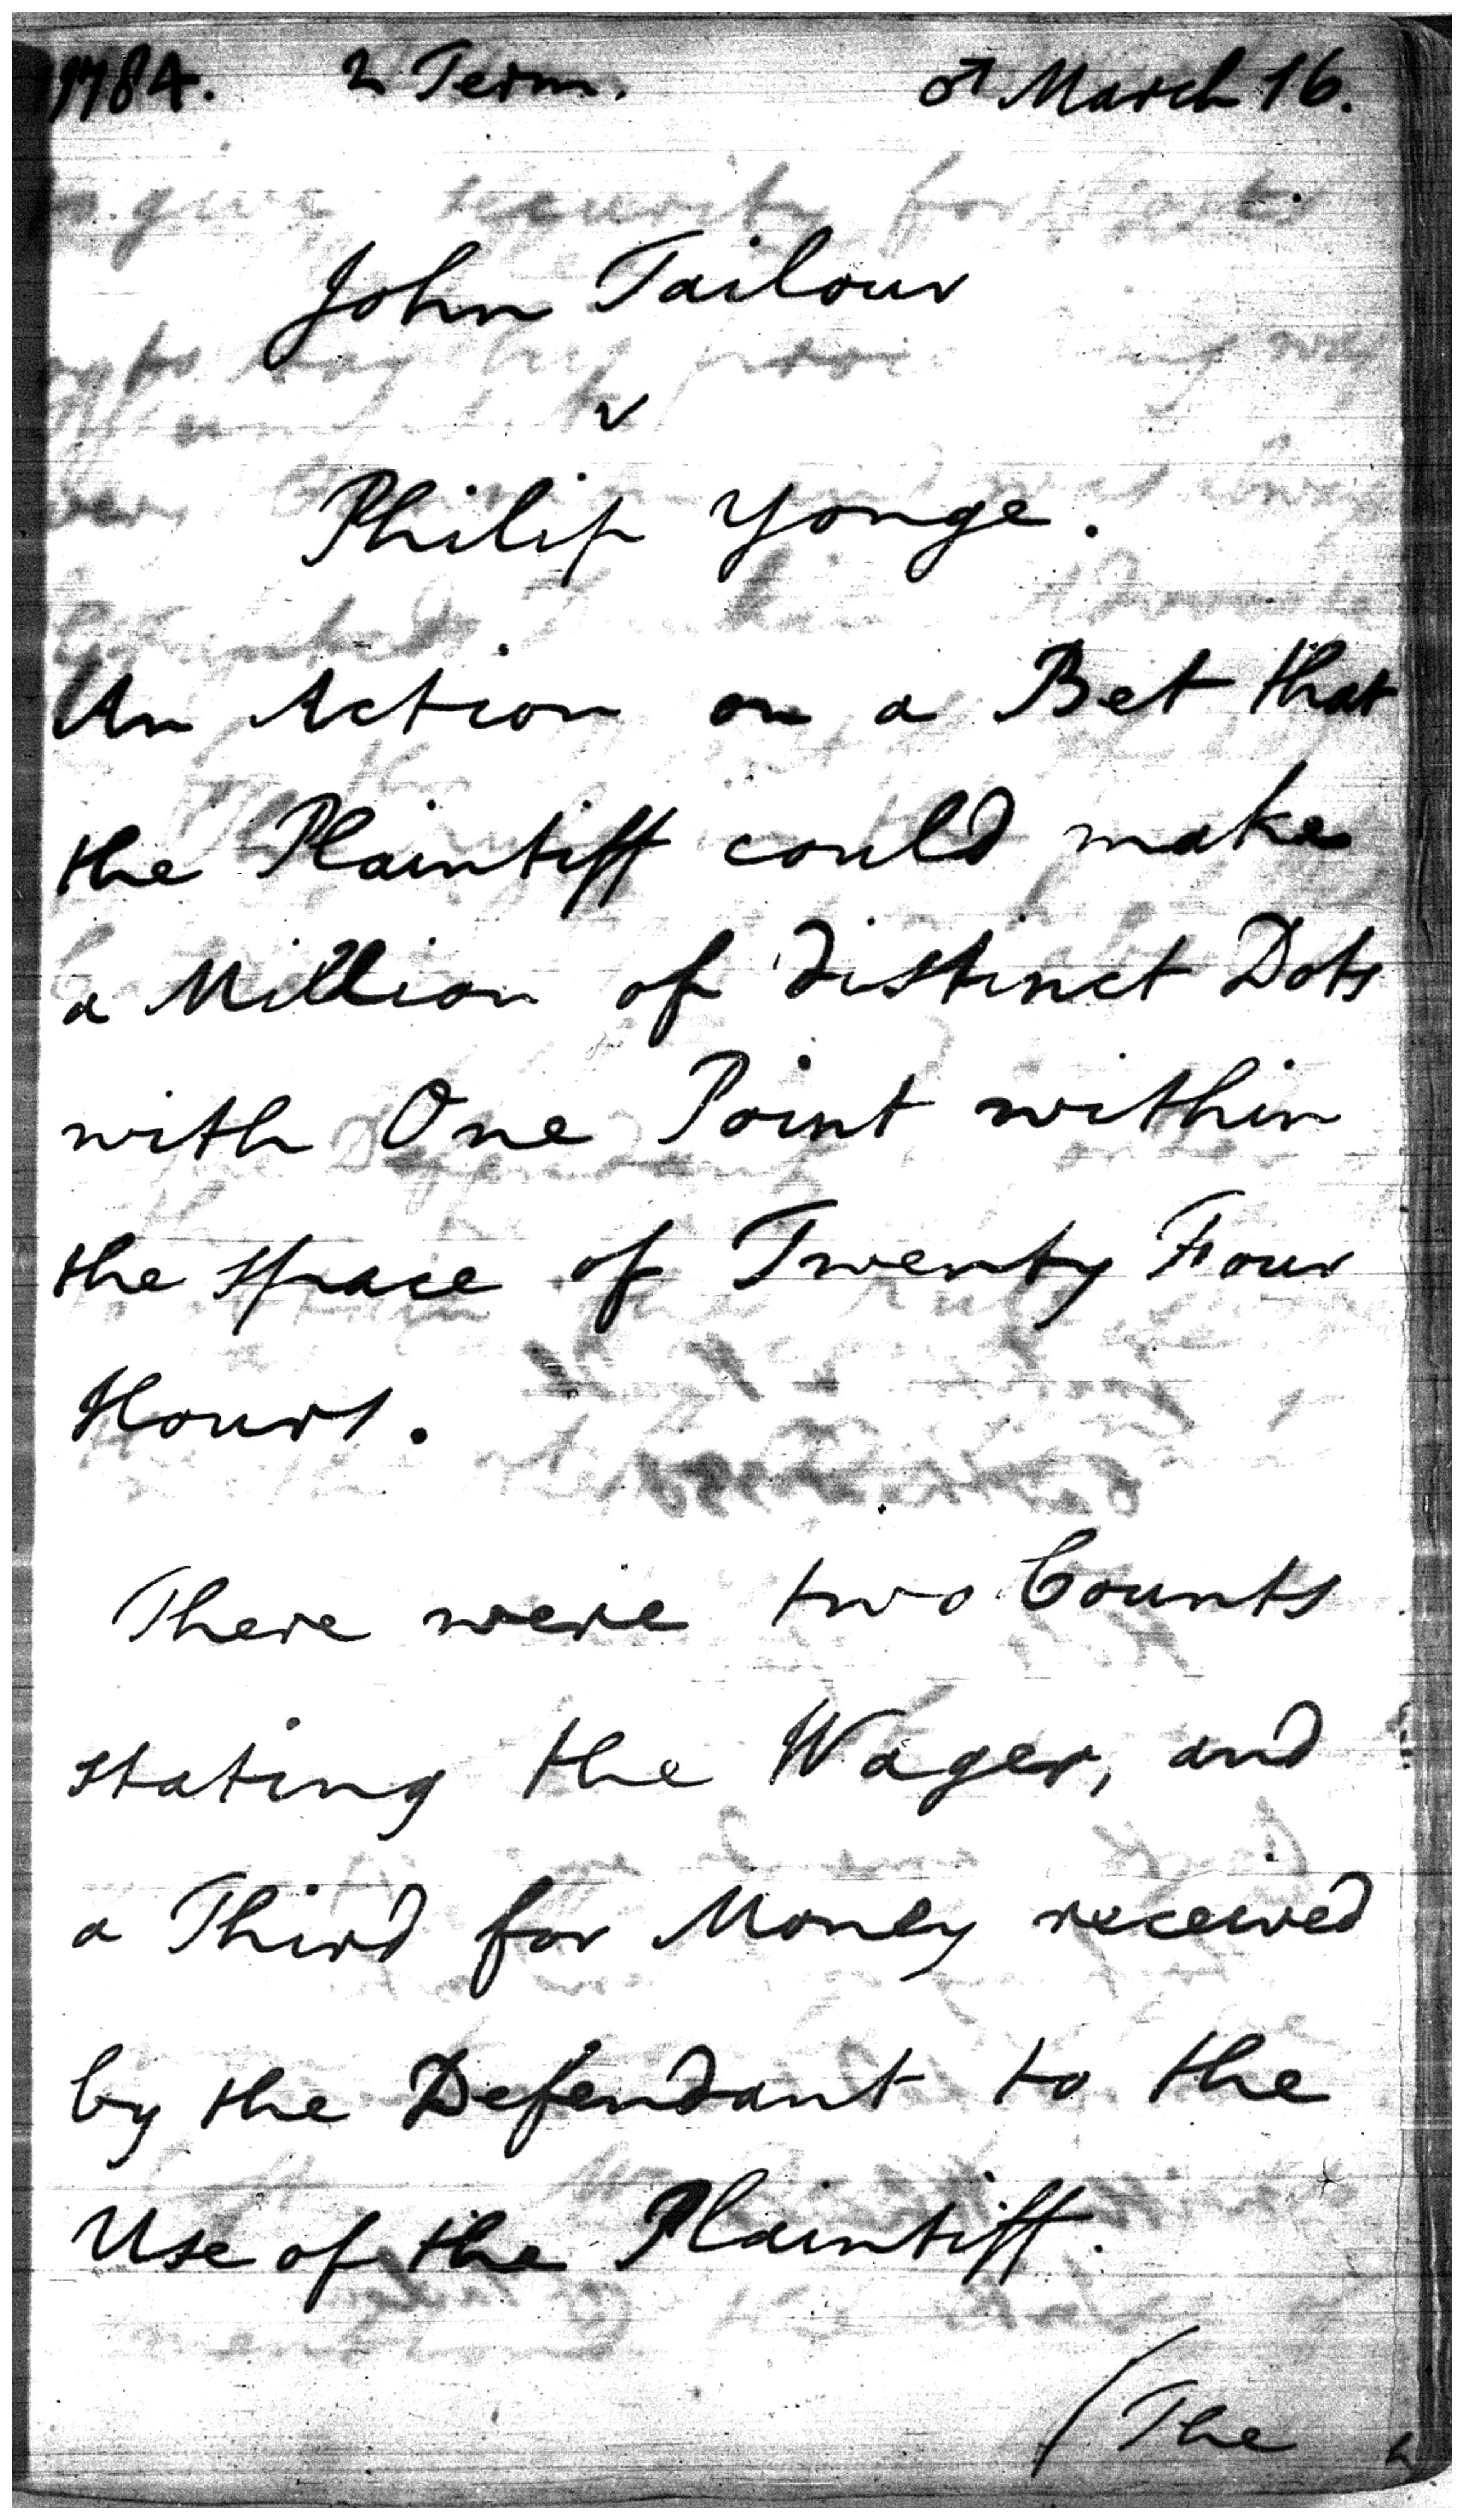 1784. 2 Term. ♂ March 16.
John Tailour
v
Philip Yonge.
An Action on a Bet that
the Plaintiff could make
a Million of distinct Dots
with One Point within
the space of Twenty Four
Hours.
There were two Counts
stating the Wager, and
a Third for Money received
by the Defendant to the
Use of the Plaintiff.
(The